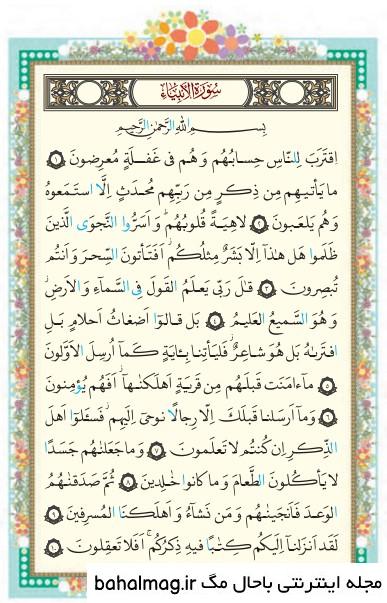 سُورَةُ الْأَنْبِيَاءِ
بِسْمِ اللهِ الرَّحْمٰنِ الرَّحِيمِ
اِقْتَرَبَ لِلنَّاسِ حِسَابُهُمْ وَهُمْ فِی غَفْلَةٍ مُعْرِضُونَ ١
مَا يَأْتِيهِمْ مِنْ ذِكْرٍ مِنْ رَبِّهِمْ مُحْدَثٍ اِلَّا اسْتَمَعُوهُ
وَهُمْ يَلْعَبُونَ ٢ لَاهِيَةً قُلُوبُهُمْ وَاَسَرُّوا النَّجْوَی الَّذِينَ
ظَلَمُوا هَلْ هٰذَا اِلَّا بَشَرٌ مِثْلُكُمْ اَفَتَأْتُونَ السِّحْرَ وَاَنْتُمْ
تُبْصِرُونَ ٣ قَالَ رَبِّی يَعْلَمُ الْقَوْلَ فِی السَّمَاءِ وَالْاَرْضِ
وَهُوَ السَّمِيعُ الْعَلِيمُ ٤ بَلْ قَالُوا اَضْغَاثُ اَحْلَامٍ بَلِ
افْتَرَاهُ بَلْ هُوَ شَاعِرٌ فَلْيَأْتِنَا بِئَايَةٍ كَمَا اُرْسِلَ الْاَوَّلُونَ
٥ مَا ءَامَنَتْ قَبْلَهُمْ مِنْ قَرْيَةٍ اَهْلَكْنَاهَا اَفَهُمْ يُؤْمِنُونَ
٦ وَمَا اَرْسَلْنَا قَبْلَكَ اِلَّا رِجَالًا نُوحِی اِلَيْهِمْ فَسْئَلُوا اَهْلَ
الذِّكْرِ اِنْ كُنْتُمْ لَا تَعْلَمُونَ ٧ وَمَا جَعَلْنَاهُمْ جَسَدًا
لَا يَأْكُلُونَ الطَّعَامَ وَمَا كَانُوا خَالِدِينَ ٨ ثُمَّ صَدَقْنَاهُمُ
الْوَعْدَ فَاَنْجَيْنَاهُمْ وَمَنْ نَشَاءُ وَاَهْلَكْنَا الْمُسْرِفِينَ ٩
لَقَدْ اَنْزَلْنَا اِلَيْكُمْ كِتَابًا فِيهِ ذِكْرُكُمْ اَفَلَا تَعْقِلُونَ ١٠
مجله اینترنتی باحال مگ bahalmag.ir